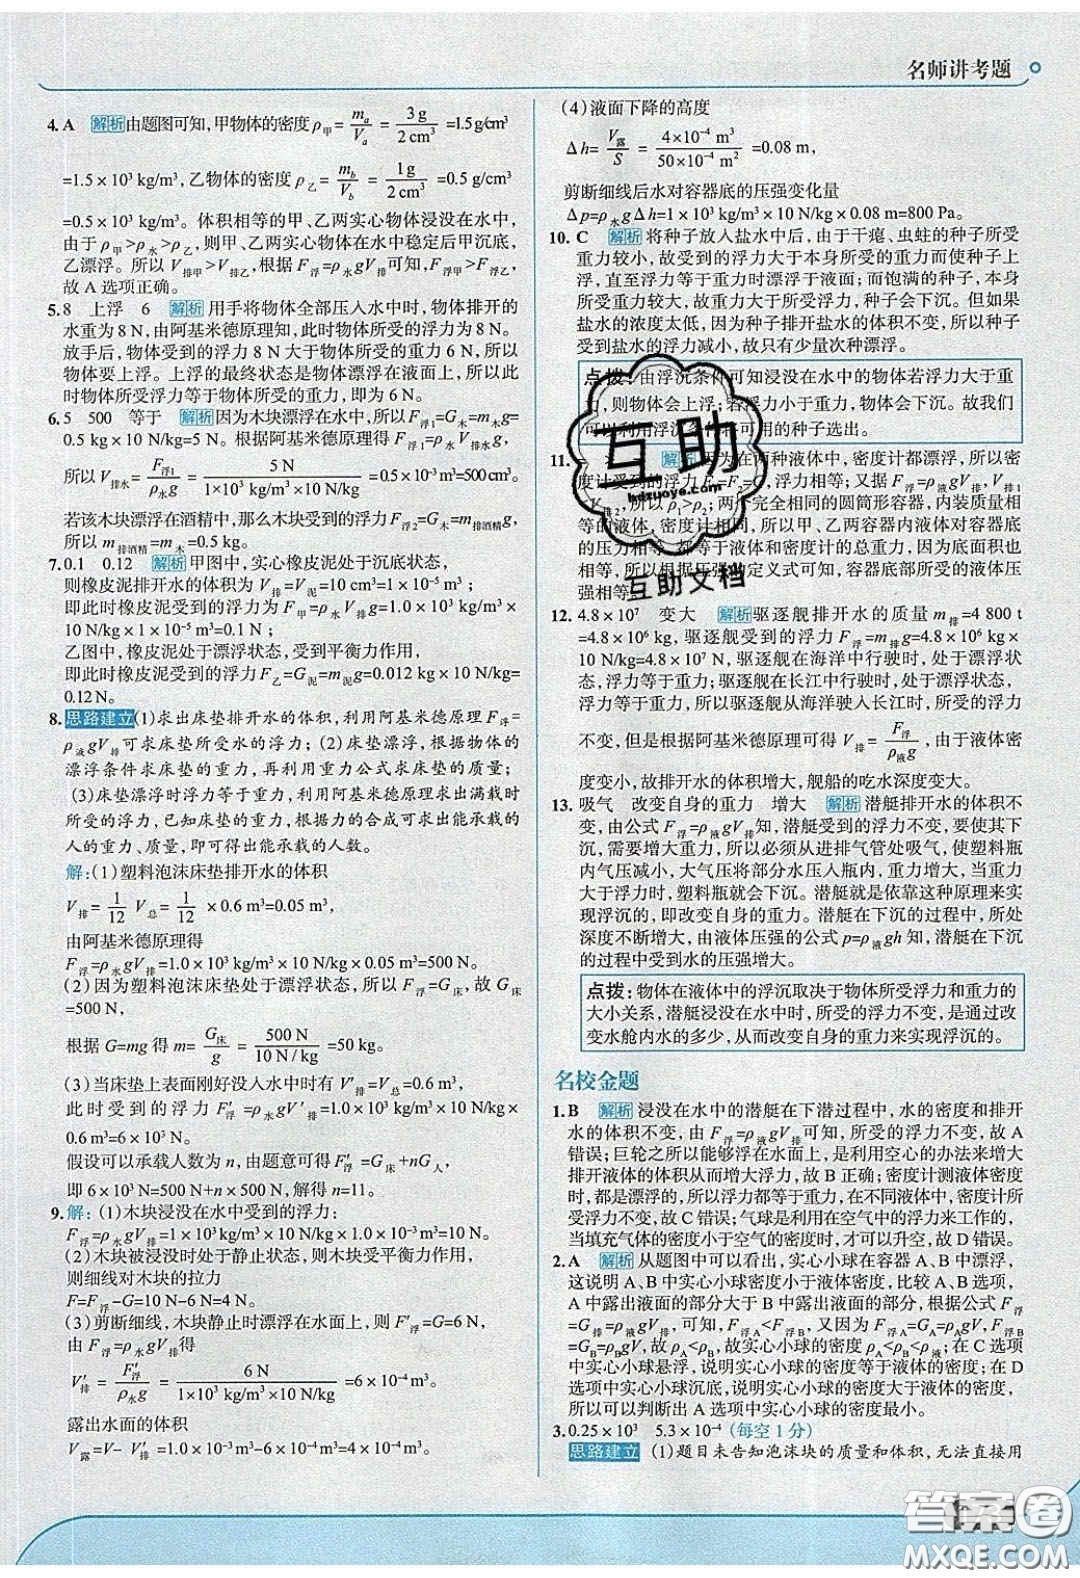 名师讲考题
4. A 解析 由题图可知,甲物体的密度ρ甲= ma/Va = 3 g/2 cm³ =1.5 g/cm³
=1.5×10³ kg/m³,乙物体的密度ρ乙= mb/Vb = 1 g/2 cm³ =0.5 g/cm³
=0.5×10³ kg/m³。体积相等的甲、乙两实心物体浸没在水中,
由于ρ甲>ρ水>ρ乙,则甲、乙两实心物体在水中稳定后甲沉底,
乙漂浮。所以V排甲>V排乙,根据F浮=ρ水gV排可知,F浮甲>F浮乙,
故A选项正确。
5. 8 上浮 6 解析 用手将物体全部压入水中时,物体排开的
水重为8 N,由阿基米德原理知,此时物体所受的浮力为8 N。
放手后,物体受到的浮力8 N大于物体所受的重力6 N,所以
物体要上浮。上浮的最终状态是物体漂浮在液面上,所以此
时物体所受浮力等于物体所受的重力,即为6 N。
6. 5 500 等于 解析 因为木块漂浮在水中,所以F浮1=G木=m木g=
0.5 kg×10 N/kg=5 N。根据阿基米德原理得F浮1=ρ水V排水g,
所以V排水= F浮1/ρ水g = 5 N/1.0×10³ kg/m³×10 N/kg =0.5×10⁻³ m³=500 cm³。
若该木块漂浮在酒精中,那么木块受到的浮力F浮2=G木=m排酒精g,
所以m排酒精=m木=0.5 kg。
7. 0.1 0.12 解析 甲图中,实心橡皮泥处于沉底状态,
则橡皮泥排开水的体积为V排=V泥=10 cm³=1×10⁻⁵ m³;
即此时橡皮泥受到的浮力为F甲=ρ水V排g=1.0×10³ kg/m³×
10 N/kg×1×10⁻⁵ m³=0.1 N;
乙图中,橡皮泥处于漂浮状态,受到平衡力作用,
即此时橡皮泥受到的浮力F乙=G泥=m泥g=0.012 kg×10 N/kg=
0.12 N。
8. 思路建立 (1)求出床垫排开水的体积,利用阿基米德原理F浮=
ρ液gV排可求床垫所受水的浮力;(2)床垫漂浮,根据物体的
漂浮条件求床垫的重力,再利用重力公式求床垫的质量;
(3)床垫漂浮时浮力等于重力,利用阿基米德原理求出满载时
所受的浮力,已知床垫的重力,根据力的合成可求出能承载的
人的重力、质量,即可得出能承载的人数。
解:(1)塑料泡沫床垫排开水的体积
V排= 1/12 V总= 1/12 ×0.6 m³=0.05 m³,
由阿基米德原理得
F浮=ρ水gV排=1.0×10³ kg/m³×10 N/kg×0.05 m³=500 N。
(2)因为塑料泡沫床垫处于漂浮状态,所以F浮=G床,故G床
=500 N,
根据G=mg得m= G床/g = 500 N/10 N/kg =50 kg。
(3)当床垫上表面刚好没入水中时有V′排=V总=0.6 m³,
此时受到的浮力F′浮=ρ水gV′排=1.0×10³ kg/m³×10 N/kg×
0.6 m³=6×10³ N。
假设可以承载人数为n,由题意可得F′浮=G床+nG人,
即6×10³ N=500 N+n×500 N,解得n=11。
9. 解:(1)木块浸没在水中受到的浮力:
F浮=ρ水gV排=1×10³ kg/m³×10 N/kg×1.0×10⁻³ m³=10 N。
(2)木块被浸没时处于静止状态,则木块受平衡力作用,
则细线对木块的拉力
F=F浮-G=10 N-6 N=4 N。
(3)剪断细线,木块静止时漂浮在水面上,则F′浮=G=6 N,
由F浮=ρ水gV排得
V′排= F′浮/ρ水g = 6 N/1×10³ kg/m³×10 N/kg =6×10⁻⁴ m³,
露出水面的体积
V露=V-V′排=1.0×10⁻³ m³-6×10⁻⁴ m³=4×10⁻⁴ m³。
(4)液面下降的高度
Δh= V露/S = 4×10⁻⁴ m³/50×10⁻⁴ m² =0.08 m,
剪断细线后水对容器底的压强变化量
Δp=ρ水gΔh=1×10³ kg/m³×10 N/kg×0.08 m=800 Pa。
10. C 解析 将种子放入盐水中后,由于干瘪、虫蛀的种子所受
重力较小,故受到的浮力大于本身所受的重力而使种子上
浮,直至浮力等于重力时漂浮于液面;而饱满的种子,本身
所受重力较大,故重力大于所受浮力,种子会下沉。但如果
盐水的浓度太低,因为种子排开盐水的体积不变,所以种子
受到盐水的浮力减小,故只有少量次种漂浮。
点拨:由浮沉条件可知浸没在水中的物体若浮力大于重
力,则物体会上浮;若浮力小于重力,物体会下沉。故我们
可以利用浮沉条件将可用的种子选出。
11. 解析 因为在两种液体中,密度计都漂浮,所以密
度计受到的浮力F1=F2=G,浮力相等;又因F浮=ρ液gV排,V排1
<V排2,所以ρ1>ρ2;两个完全相同的圆筒形容器,内装质量相
等的液体,密度计相同,所以甲、乙两容器内液体对容器底
的压力相等,都等于液体和密度计的总重力,因为底面积也
相等,所以根据压强的定义式可知,容器底部所受的液体压
强相等。
12. 4.8×10⁷ 变大 解析 驱逐舰排开水的质量m排=4 800 t
=4.8×10⁶ kg,驱逐舰受到的浮力F浮=m排g=4.8×10⁶ kg×
10 N/kg=4.8×10⁷ N,驱逐舰在海洋中行驶时,处于漂浮状
态,浮力等于重力;驱逐舰在长江中行驶时,处于漂浮状态,
浮力等于重力,所以驱逐舰从海洋驶入长江时,所受的浮力
不变,但是根据阿基米德原理可得V排= F浮/ρ液g ,由于液体密
度变小,故排开水的体积增大,舰船的吃水深度变大。
13. 吸气 改变自身的重力 增大 解析 潜艇排开水的体积不
变,由公式F浮=ρ液gV排知,潜艇受到的浮力不变,要使其下
沉,需要增大重力,所以必须从进排气管处吸气,塑料瓶
内气压减小,大气压将部分水压入瓶内,重力增大,当重力
大于浮力时,塑料瓶就会下沉。潜艇就是依靠这种原理来实
现浮沉的,即改变自身的重力。潜艇在下沉的过程中,所处
深度不断增大,由液体压强的公式p=ρ液gh知,潜艇在下沉
的过程中受到水的压强增大。
点拨:物体在液体中的浮沉取决于物体所受浮力和重力的
大小关系,潜艇浸没在水中时,所受的浮力不变,是通过改
变水舱内水的多少,从而改变自身的重力来实现浮沉的。
名校金题
1. B 解析 浸没在水中的潜艇在下潜过程中,水的密度和排开
水的体积不变,由F浮=ρ液gV排可知,所受的浮力不变,故A
错误;巨轮之所以能够浮在水面上,是利用空心的办法来增大
排开液体的体积从而增大浮力,故B正确;密度计测液体密度
时,都是漂浮的,所以浮力都等于重力,在不同液体中,密度计所
受浮力不变,故C错误;气球是利用在空气中的浮力来工作的,
当填充气体的密度小于空气的密度时,才可以升空,故D错误。
2. A 解析 从题图中可以看出,实心小球在容器A、B中漂浮,
这说明A、B中实心小球密度小于液体密度,比较A、B选项,
A中露出液面的部分大于B中露出液面的部分,根据公式F浮
=G排=ρ液gV排,可知,F浮A<F浮B,又因为F浮A=GA=ρAgV,F浮B
=GB=ρBgV,故ρA<ρB,故实心小球的密度ρA<ρB<ρ液;在C选项
中实心小球悬浮,说明实心小球的密度等于液体的密度;在D
选项中实心小球沉底,说明实心小球的密度大于液体的密度,
所以可以判断出A选项中实心小球的密度最小。
3. 0.25×10³ 5.3×10⁻⁴ (每空1分)
思路建立 (1)题目未告知泡沫块的质量和体积,无法直接用
互助
hdzuoye.com
互助文档
答案圈
MXQE.COM